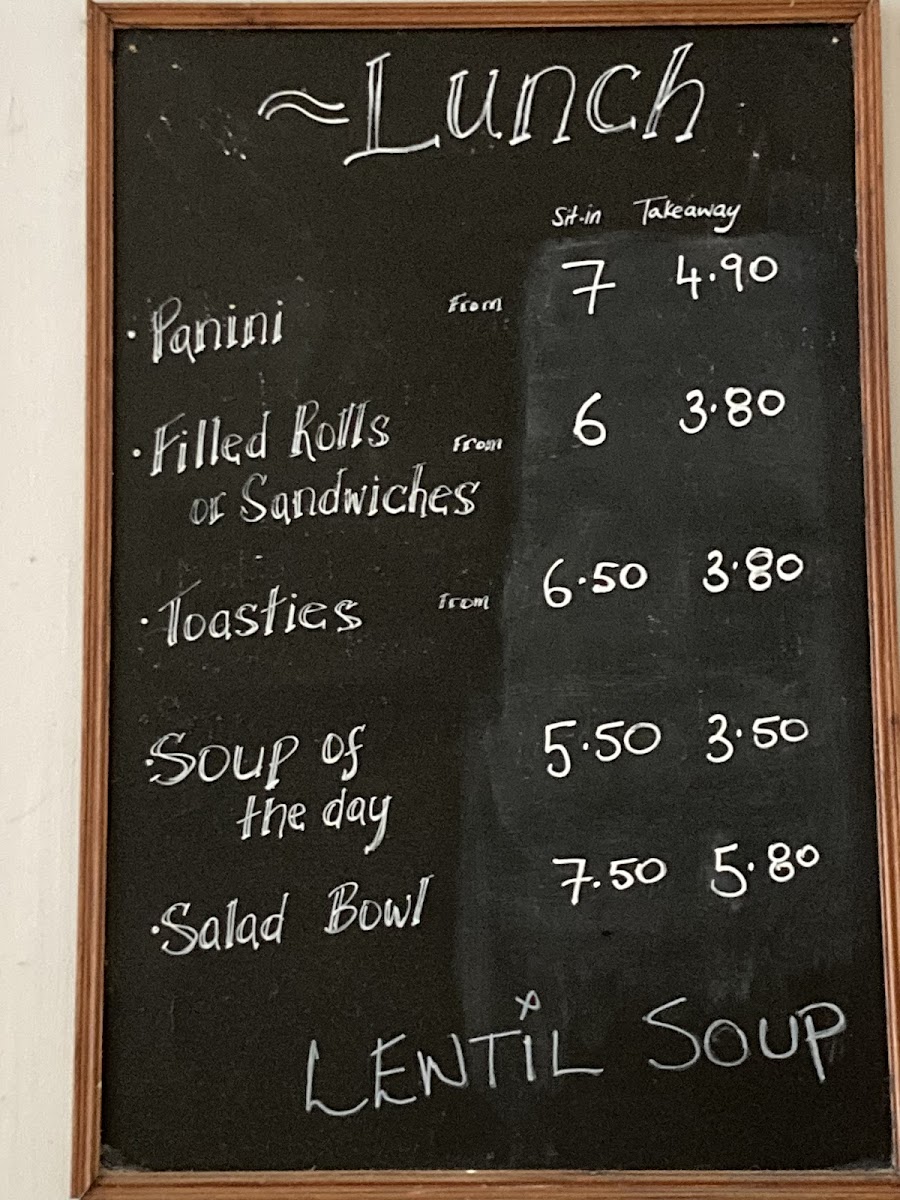 ~Lunch
Sit-in Takeaway
· Panini From 7 4.90
· Filled Rolls From 6 3.80
or Sandwiches
· Toasties From 6.50 3.80
· Soup of 5.50 3.50
the day
· Salad Bowl 7.50 5.80
LENTiL SOUP